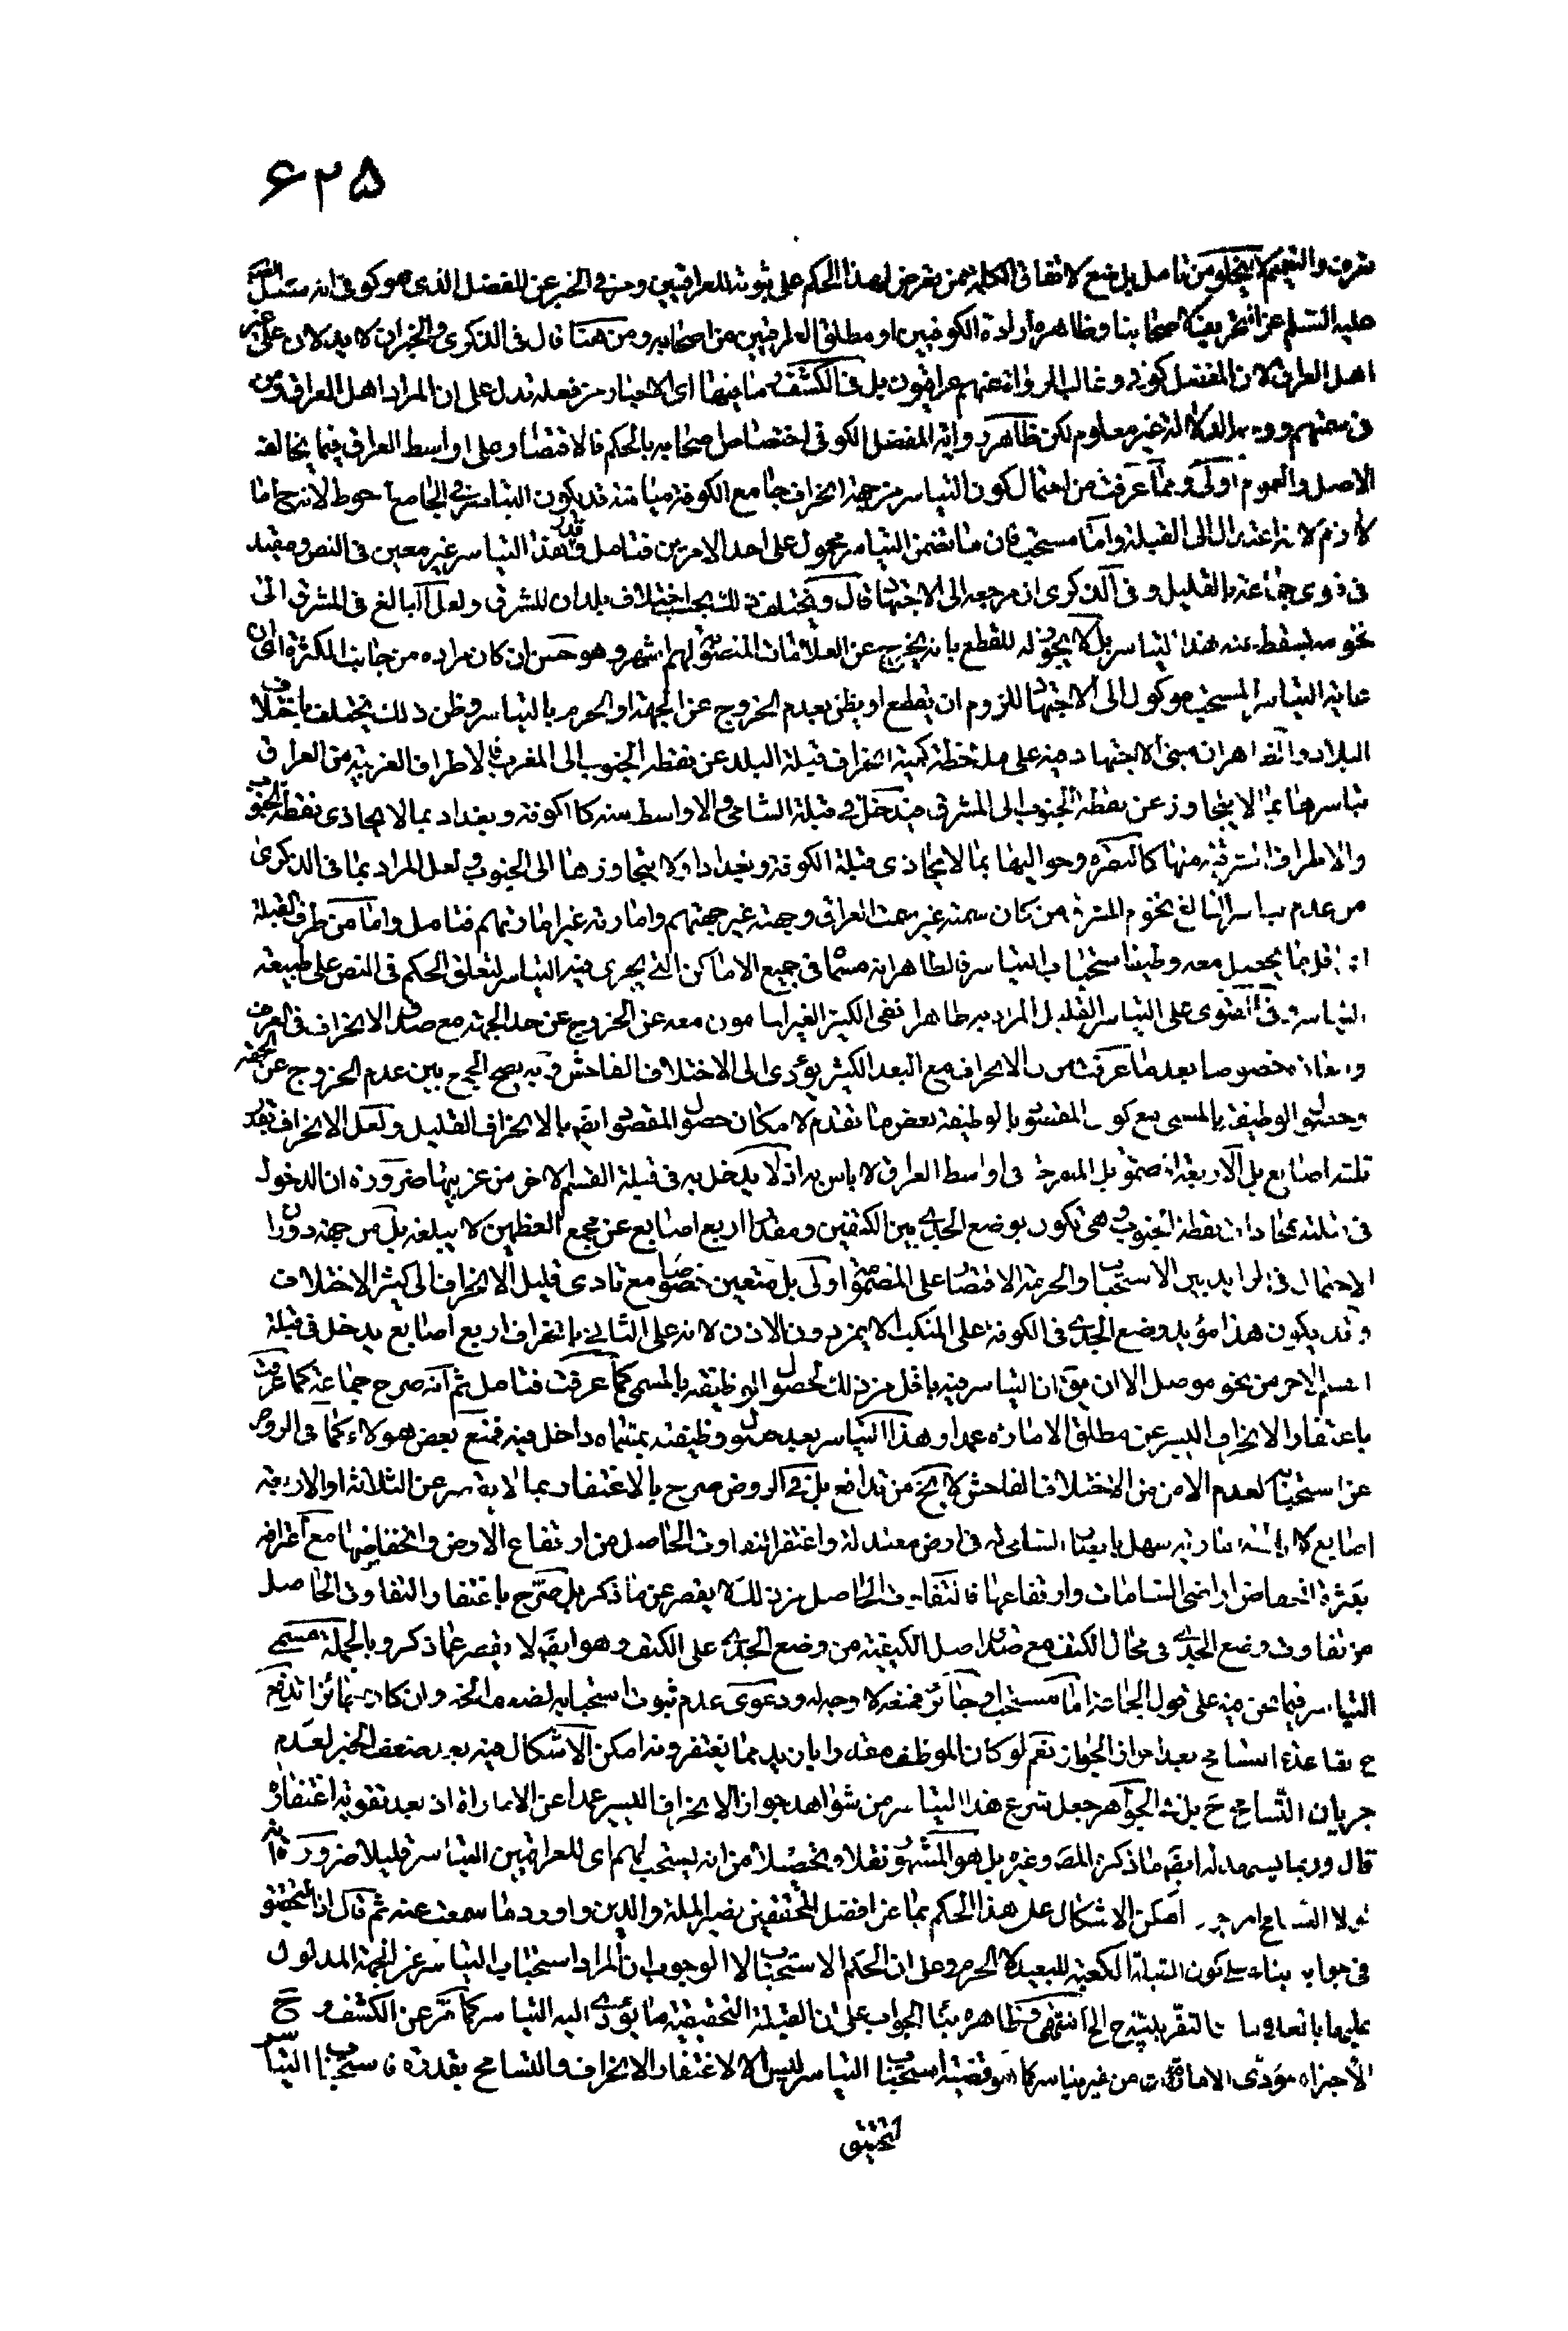 ۶۲۵
والتعميم لا يخلو من تامل بل منع لاتفاق الكلمة ممن تعرض لهذا الحكم على ثبوته للعراقيين وحز في الخبر عن المفضل الذى هو كوفى انه سئل الصم
عليه السلم عن التحريف لاصحابنا وظاهره ارادة الكوفيين او مطلق العراقيين من اصحابه ومن هنا قال فى الذكرى والخبران لا يدلان على غير
اهل العراق لان المفضل كوفى وغالب الرواة عنهم عراقيون بل فى الكشف
فى سمتهم الدلالة غير معلوم لكن ظاهر رواية المفضل الكوفى اختصاص اصحابه بالحكم فالاقتصار على اواسط العراق فيما يخالفه
الاصل والعموم اولى ومما عرفت من احتمال كون التياسر من جهة انحراف جامع الكوفة ميامنة قد يكون التياسر فى الجامع احوط لانه اما
لازم لانه اعتدال الى القبلة واما مستحب فان ما تضمن التياسر محمول على احد الامرين فتامل وقدر هذا التياسر غير معين فى النص ومقيد
فى فتوى جماعة بالقليل وفى الذكرى ان مرجعه الى الاجتهاد قال ويختلف ذلك بحسب اختلاف بلدان المشرق ولعل البالغ فى المشرق الى
تخومه يسقط عنه هذا التياسر بل لا يجوز له للقطع بانه يخرج عن العلامات المنصوبة لهم انتهى وهو حسن ان كان مراده من جانب الكثرة اى ان
غاية التياسر المستحب موكول الى الاجتهاد للزوم ان يقطع او يظن بعدم الخروج عن الجهة او الحرم بالتياسر وظن ذلك يختلف باختلاف
البلاد والظاهر ان مبنى الاجتهاد فيه على ملاحظة كمية انحراف قبلة البلد عن نقطة الجنوب الى المغرب فالاطراف الغربية من العراق
تياسرها بما لا يتجاوز عن نقطة الجنوب الى المشرق فيدخل فى قبلة الشامى والاواسط منه كالكوفة وبغداد بما لا يحاذى نقطة الجنوب
والاطراف الشرقية منها كالبصره وحواليها بما لا يحاذى قبلة الكوفة وبغداد اولا يتجاوزها الى الجنوب ولعل المراد بما فى الذكرى
من عدم تياسر البالغ تخوم المشرق من كان سمته غير سمت العراق وجهته غير جهتهم وامارته غير امارتهم فتامل واما من طرف القلة
اى اقل ما يحصل معه وظيفة استحباب التياسر فالظاهر انه مسماه فى جميع الاماكن التى يجرى فيه التياسر لتعلق الحكم فى النص على طبيعة
التياسر وفى الفتوى على التياسر القليل المراد به ظاهرا نفى الكثير الغير المامون معه عن الخروج عن حد الجهة مع صدق الانحراف فى العرف
خصوصا بعد ما عرفت من ان الانحراف مع البعد الكثير يؤدى الى الاختلاف الفاحش وبه يصح الجمع بين عدم الخروج عن الجهة
وحصول الوظيفة بالمسمى مع كون المقصود بالوظيفة بعض ما تقدم لامكان حصول المقصود ايضا بالانحراف القليل ولعل الانحراف بقدر
ثلثة اصابع بل الاربعة المضمومة بل المنفرجة فى اواسط العراق لا باس به اذ لا يدخل به فى قبلة القسم الاخر من غربيها ضرورة ان الدخول
فى قبلته محاذات نقطة الجنوب وهى تكون بوضع الجدى بين الكتفين ومقدار اربع اصابع عن مجمع العظمين لا يبلغه بل من جهة دوران
الاحتمال فى الزايد بين الاستحباب والحرمة الاقتصار على المضمومة اولى بل متعين خصوصا مع تادى قليل الانحراف الى كثير الاختلاف
وقد يكون هذا مؤيد وضع الجدى فى الكوفة على المنكب الايمن دون الاذن لانه على الثانى بانحراف اربع اصابع يدخل فى قبلة
القسم الاخر من نحو موصل الا ان يق ان التياسر فيه باقل من ذلك لحصول الوظيفة بالمسمى كما عرفت فتامل ثم انه صرح جماعة كما عرفت
باغتفار الانحراف اليسير عن مطلق الامارة عمدا وهذا التياسر بعد حصول وظيفته بمسماه داخل فيه فمنع بعض هولاء كما فى الروض
عن استحبابه لعدم الامن من الاختلاف الفاحش لا يخ من تدافع بل فى الروض صرح بالاغتفار بما لا يقصر عن الثلاثة او الاربعة
اصابع
بعثرة انخفاض اراضى الشامات وارتفاعها فالتفاوت الحاصل من ذلك لا يقصر عن ما ذكر بل صرح باغتفار التفاوت الحاصل
من تفاوت وضع الجدى فى محال الكتف مع صدق اصل الكيفية من وضع الجدى على الكتف وهو ايضا لا يقصر عما ذكر وبالجملة مسمى
التياسر فيما نحن فيه على قول الجماعة اما مستحب او جائز فمنعه لا وجه له ودعوى عدم ثبوت استحبابه لضعف ماخذه وان كان جائزا تدفع
بقاعدة التسامح بعد احراز الجواز نعم لو كان الموظف مقدارا يزيد مما يغتفر فيه امكن الاشكال فيه بعد ضعف الخبر لعدم
جريان التسامح ح بل فى الجواهر جعل تشريع هذا التياسر من شواهد جواز الانحراف اليسير عمدا عن الامارات اذ بعد تقوية اغتفاره
قال وربما يشهد له ايضا ما ذكره المصـ وغيره بل هو المشهور نقلا وتحصيلا من انه يستحب لهم اى للعراقيين التياسر قليلا ضرورة انه
لولا التسامح امكن الاشكال على هذا الحكم بما عن افضل المحققين نصير الملة والدين واورد ما سمعت عنه ثم قال اذ التحقيق
فى جوابه بناء على كون القبلة الكعبة للبعيد لا الحرم وعلى ان الحكم الاستحباب لا الوجوب ان المراد استحباب التياسر عن الجهة المدلول
عليها بالعلامات التقريبية الخ انتهى وظاهره بناء الجواب على ان القبلة التحقيقية ما يؤدى اليه التياسر كما مر عن الكشف وح
الاجزاء بمؤدى الامارات من غير تياسر كما هو قضية استحباب التياسر ليس الا لاغتفار الانحراف والتسامح بقدره فاستحباب التياسر
لتحقيق